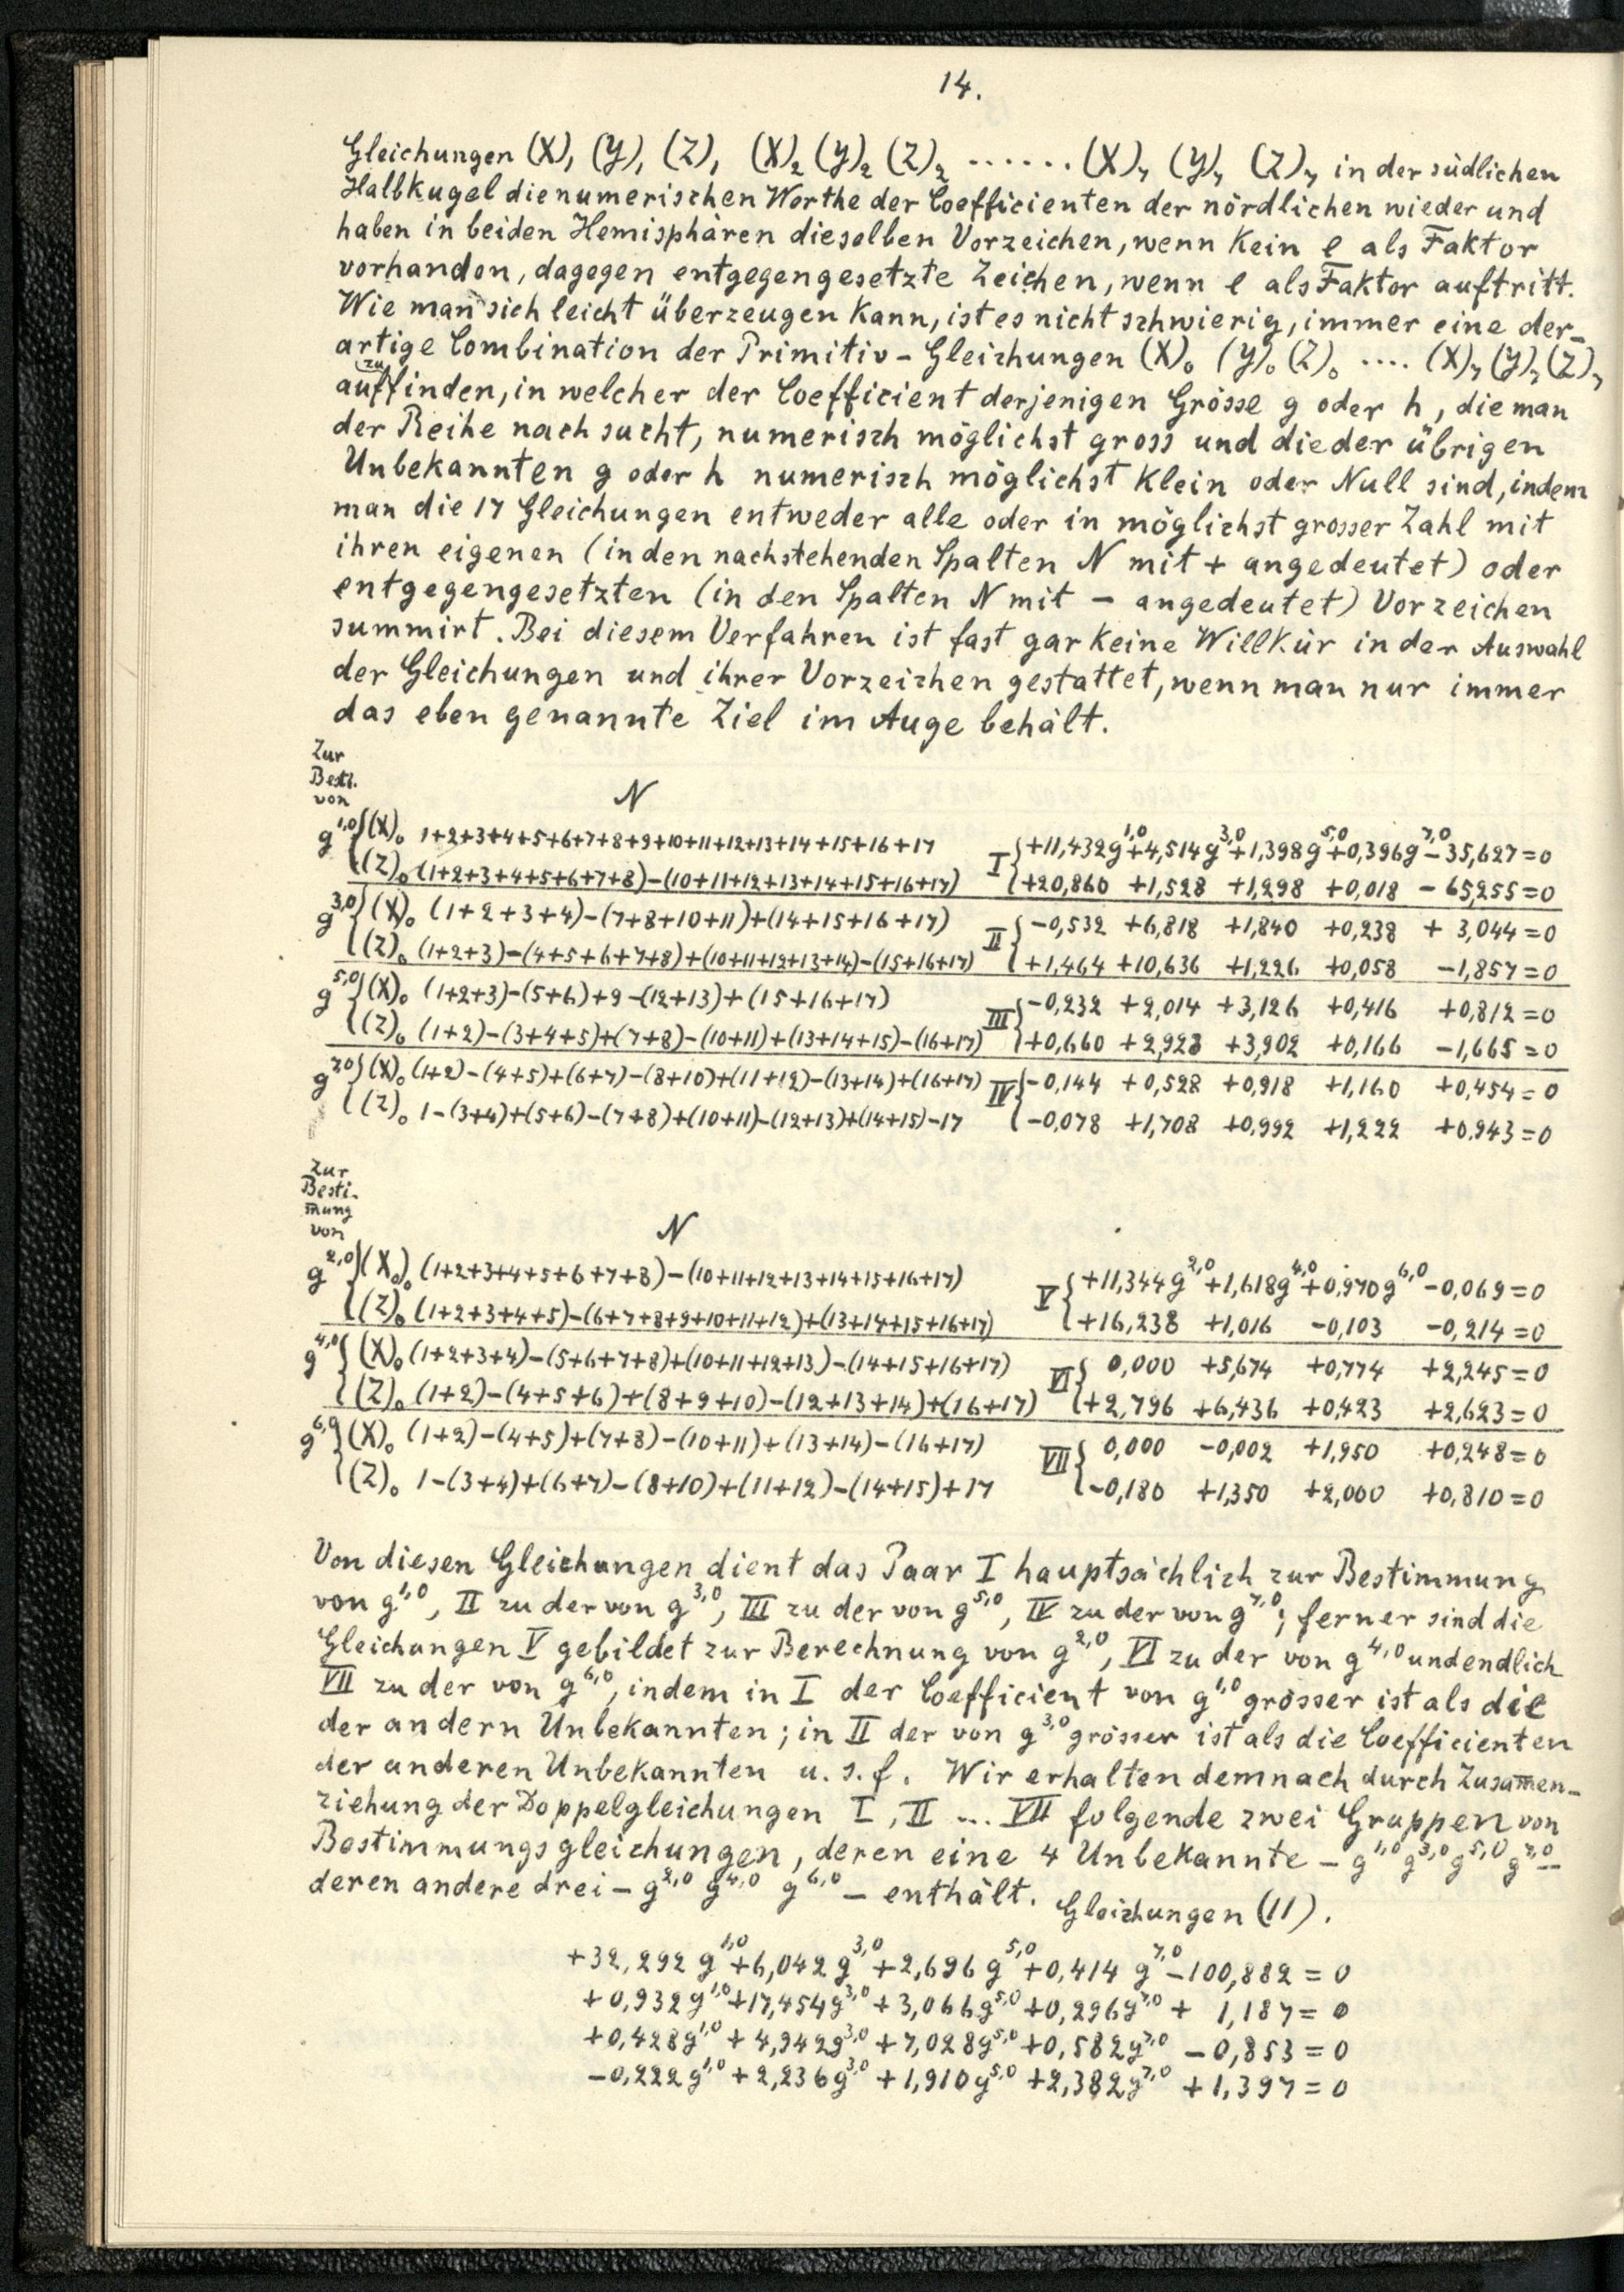 14.
Gleichungen (X)₁ (Y)₁ (Z)₁ (X)₂ (Y)₂ (Z)₂ ...... (X)₇ (Y)₇ (Z)₇ in der südlichen
Halbkugel die numerischen Werthe der Coefficienten der nördlichen wieder und
haben in beiden Hemisphären dieselben Vorzeichen, wenn kein e als Faktor
vorhanden, dagegen entgegengesetzte Zeichen, wenn e als Faktor auftritt.
Wie man sich leicht überzeugen kann, ist es nicht schwierig, immer eine der-
artige Combination der Primitiv-Gleichungen (X)₀ (Y)₀ (Z)₀ .... (X)₇ (Y)₇ (Z)₇
aufzufinden, in welcher der Coefficient derjenigen Grösse g oder h, die man
der Reihe nach sucht, numerisch möglichst gross und die der übrigen
Unbekannten g oder h numerisch möglichst klein oder Null sind, indem
man die 17 Gleichungen entweder alle oder in möglichst grosser Zahl mit
ihren eigenen (in den nachstehenden Spalten N mit + angedeutet) oder
entgegengesetzten (in den Spalten N mit - angedeutet) Vorzeichen
summirt. Bei diesem Verfahren ist fast gar keine Willkür in der Auswahl
der Gleichungen und ihrer Vorzeichen gestattet, wenn man nur immer
das eben genannte Ziel im Auge behält.
Zur
Besti.
von
N
g^1,0 {(X)₀ 1+2+3+4+5+6+7+8+9+10+11+12+13+14+15+16+17 I {+11,432g^1,0+4,514g^3,0+1,398g^5,0+0,396g^7,0-35,627=0
(Z)₀ (1+2+3+4+5+6+7+8)-(10+11+12+13+14+15+16+17) +20,860 +1,528 +1,298 +0,018 -65,255=0
g^3,0 {(X)₀ (1+2+3+4)-(7+8+10+11)+(14+15+16+17) II {-0,532 +6,818 +1,840 +0,238 +3,044=0
(Z)₀ (1+2+3)-(4+5+6+7+8)+(10+11+12+13+14)-(15+16+17) +1,464 +10,636 +1,226 +0,058 -1,857=0
g^5,0 {(X)₀ (1+2+3)-(5+6)+9-(12+13)+(15+16+17) III {-0,232 +2,014 +3,126 +0,416 +0,812=0
(Z)₀ (1+2)-(3+4+5)+(7+8)-(10+11)+(13+14+15)-(16+17) +0,660 +2,928 +3,902 +0,166 -1,665=0
g^7,0 {(X)₀ (1+2)-(4+5)+(6+7)-(8+10)+(11+12)-(13+14)+(16+17) IV {-0,144 +0,528 +0,918 +1,160 +0,454=0
(Z)₀ 1-(3+4)+(5+6)-(7+8)+(10+11)-(12+13)+(14+15)-17 -0,078 +1,708 +0,992 +1,222 +0,943=0
Zur
Besti-
m̄ung
von
N
g^2,0 {(X)₀ (1+2+3+4+5+6+7+8)-(10+11+12+13+14+15+16+17) V {+11,344g^2,0+1,618g^4,0+0,970g^6,0-0,069=0
(Z)₀ (1+2+3+4+5)-(6+7+8+9+10+11+12)+(13+14+15+16+17) +16,238 +1,016 -0,103 -0,214=0
g^4,0 {(X)₀ (1+2+3+4)-(5+6+7+8)+(10+11+12+13)-(14+15+16+17) VI {0,000 +5,674 +0,774 +2,245=0
(Z)₀ (1+2)-(4+5+6)+(8+9+10)-(12+13+14)+(16+17) +2,796 +6,436 +0,423 +2,623=0
g^6,0 {(X)₀ (1+2)-(4+5)+(7+8)-(10+11)+(13+14)-(16+17) VII {0,000 -0,002 +1,950 +0,248=0
(Z)₀ 1-(3+4)+(6+7)-(8+10)+(11+12)-(14+15)+17 -0,180 +1,350 +2,000 +0,810=0
Von diesen Gleichungen dient das Paar I hauptsächlich zur Bestimmung
von g^1,0, II zu der von g^3,0, III zu der von g^5,0, IV zu der von g^7,0; ferner sind die
Gleichungen V gebildet zur Berechnung von g^2,0, VI zu der von g^4,0 und endlich
VII zu der von g^6,0, indem in I der Coefficient von g^1,0 grösser ist als die
der andern Unbekannten; in II der von g^3,0 grösser ist als die Coefficienten
der anderen Unbekannten u. s. f. Wir erhalten demnach durch Zusam̄en-
ziehung der Doppelgleichungen I, II ... VII folgende zwei Gruppen von
Bestimmungsgleichungen, deren eine 4 Unbekannte - g^1,0 g^3,0 g^5,0 g^7,0 -
deren andere drei - g^2,0 g^4,0 g^6,0 - enthält. Gleichungen (11).
+32,292 g^1,0+6,042 g^3,0+2,696 g^5,0+0,414 g^7,0-100,882=0
+0,932g^1,0+17,454g^3,0+3,066g^5,0+0,296g^7,0+ 1,187=0
+0,428g^1,0+4,942g^3,0+7,028g^5,0+0,582g^7,0-0,853=0
-0,222g^1,0+2,236g^3,0+1,910g^5,0+2,382g^7,0+1,397=0